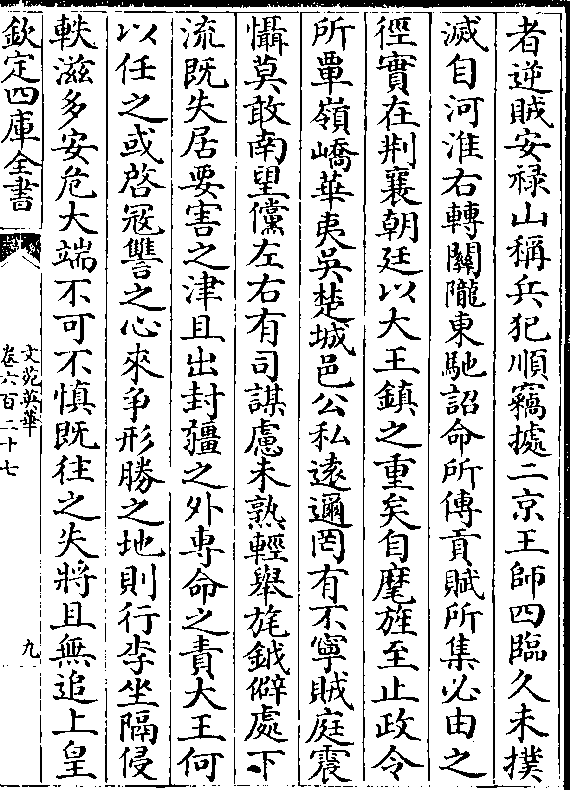 者逆賊安禄山稱兵犯順竊㩀二京王師四臨久未撲
滅自河淮右轉關隴東馳詔命所傳貢賦所集必由之
徑實在荆襄朝廷以大王鎮之重矣自麾旌至止政令
所覃嶺嶠華夷吳楚城邑公私逺邇罔有不寧賊庭震
懾莫敢南望儻左右有司謀慮未熟輕舉旄鉞僻處下
流既失居要害之津且出封疆之外専命之責大王何
以任之或啓冦讐之心來争形勝之地則行李坐隔侵
軼滋多安危大端不可不慎既徃之失將且無追上皇
欽定四庫全書
文苑英華
卷六百二十七
九